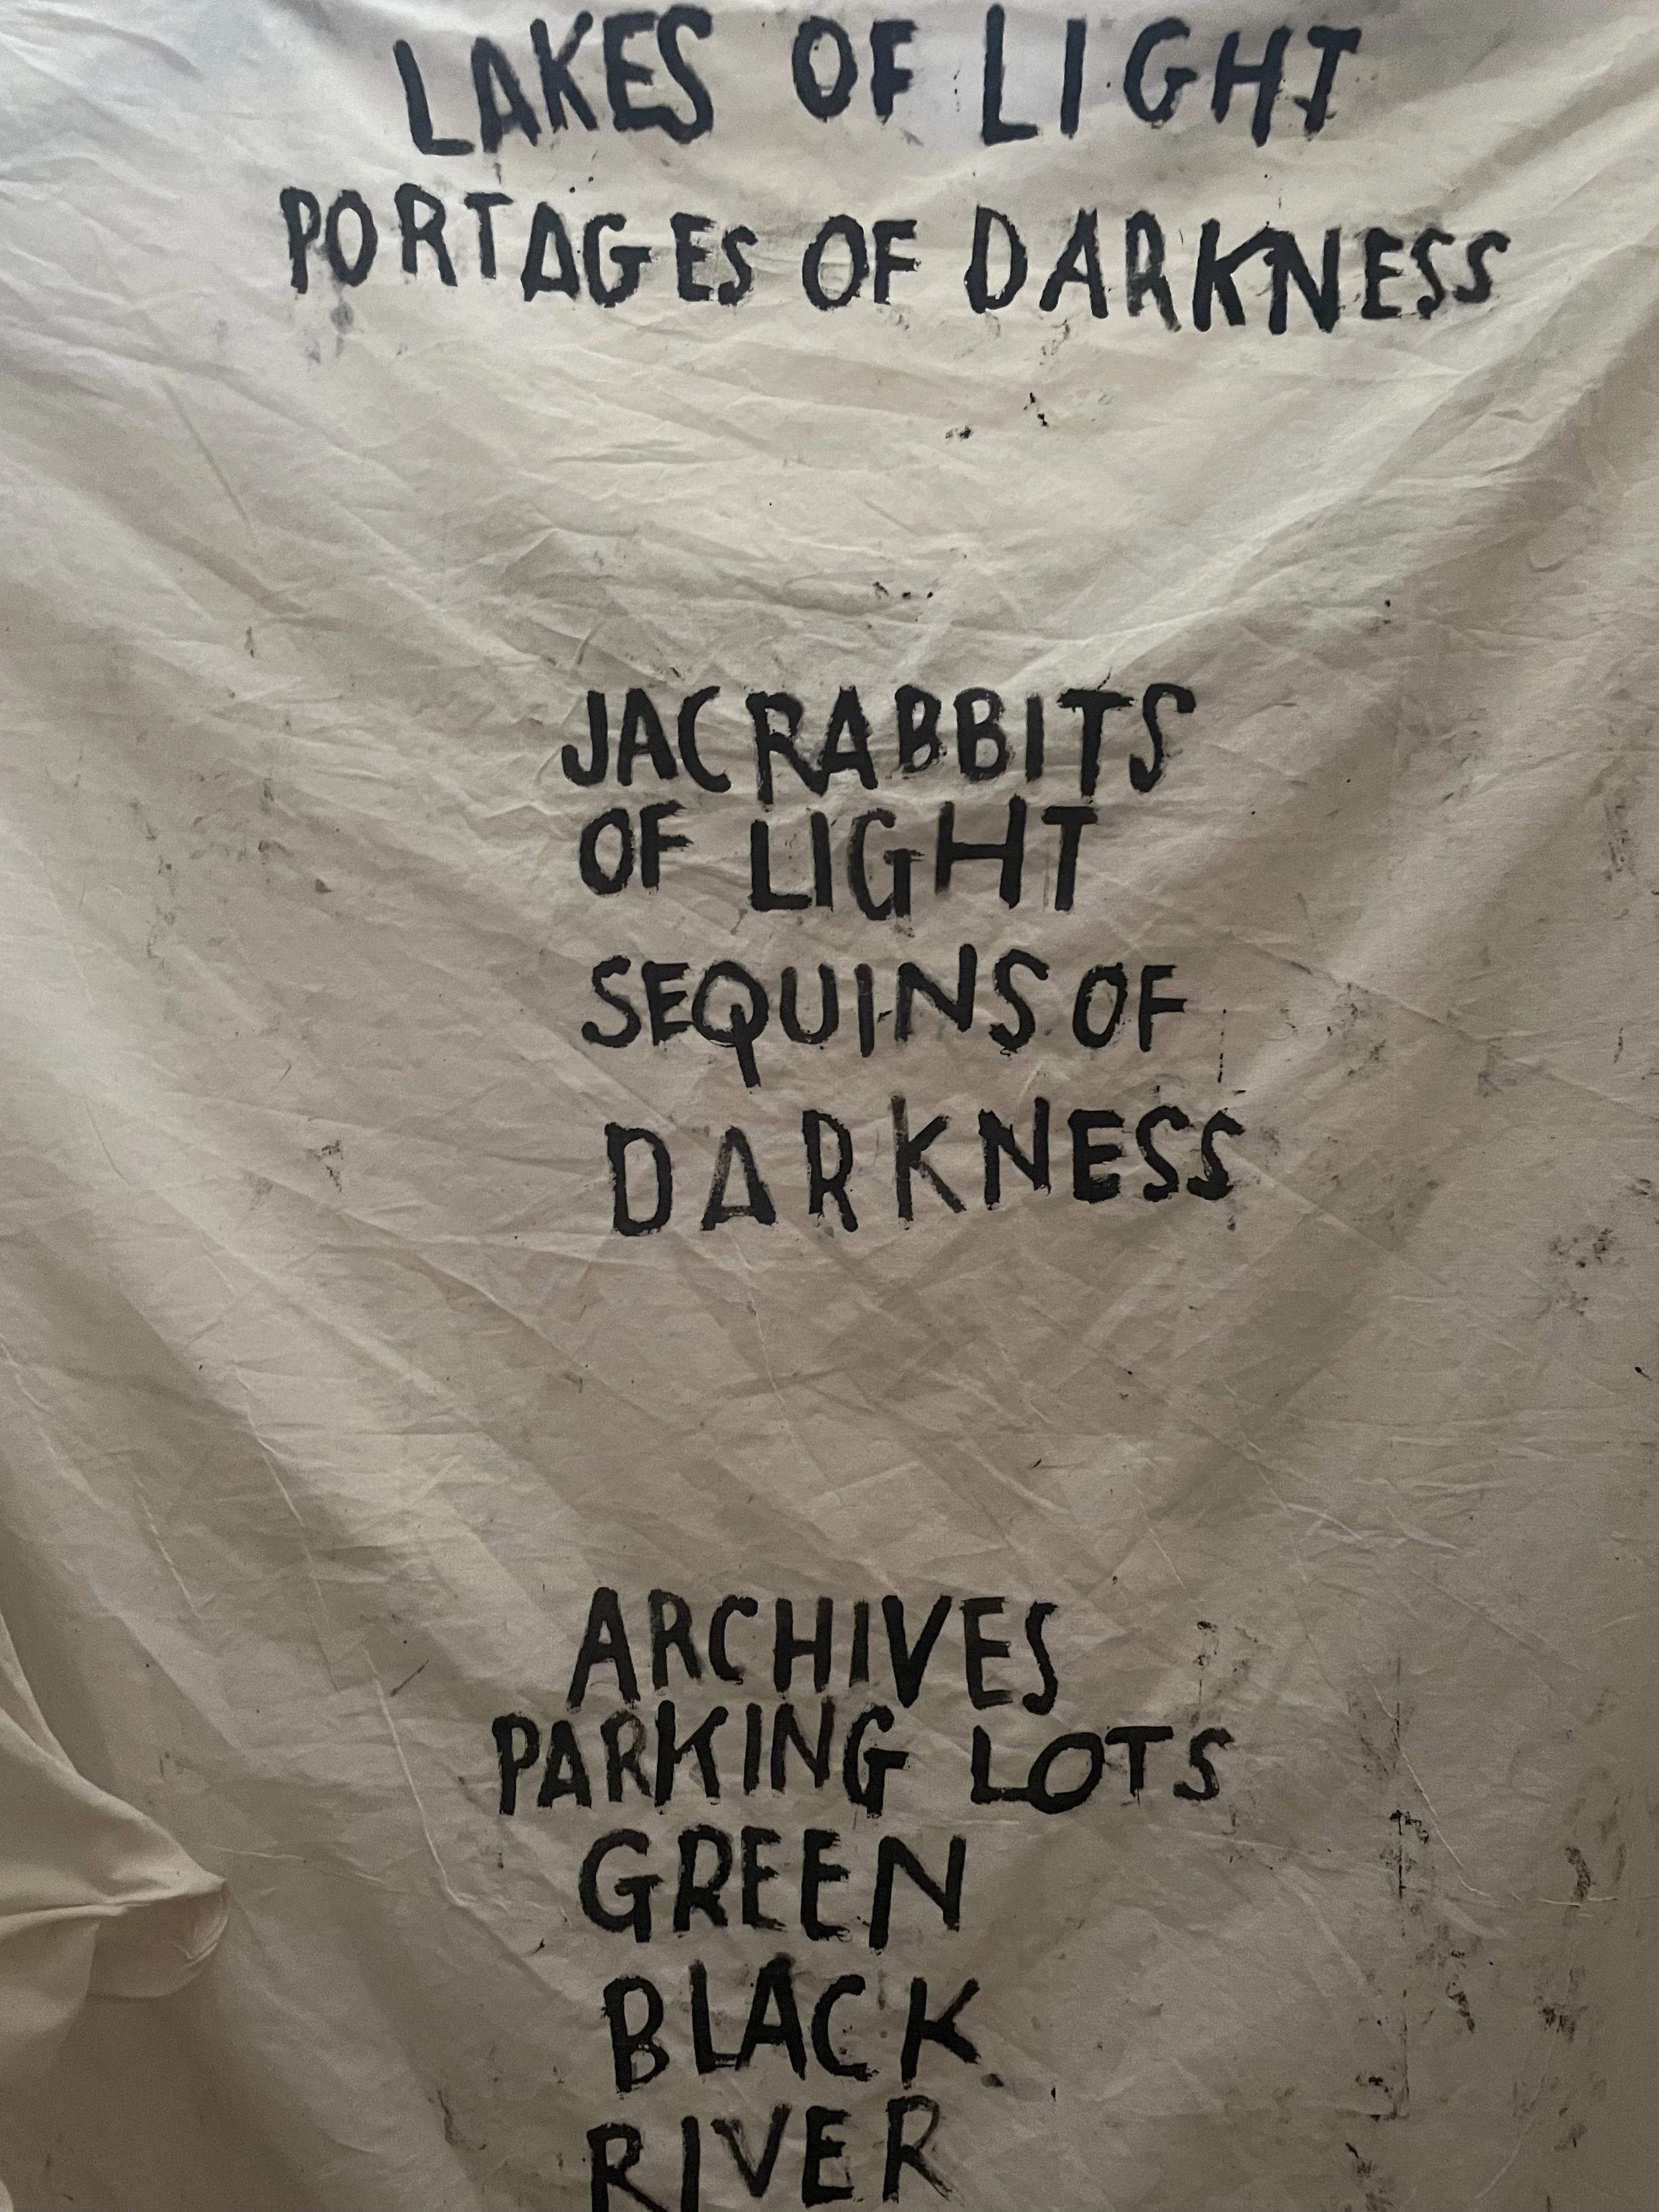 LAKES OF LIGHT
PORTAGES OF DARKNESS
JACRABBITS
OF LIGHT
SEQUINS OF
DARKNESS
ARCHIVES
PARKING LOTS
GREEN
BLACK
RIVER